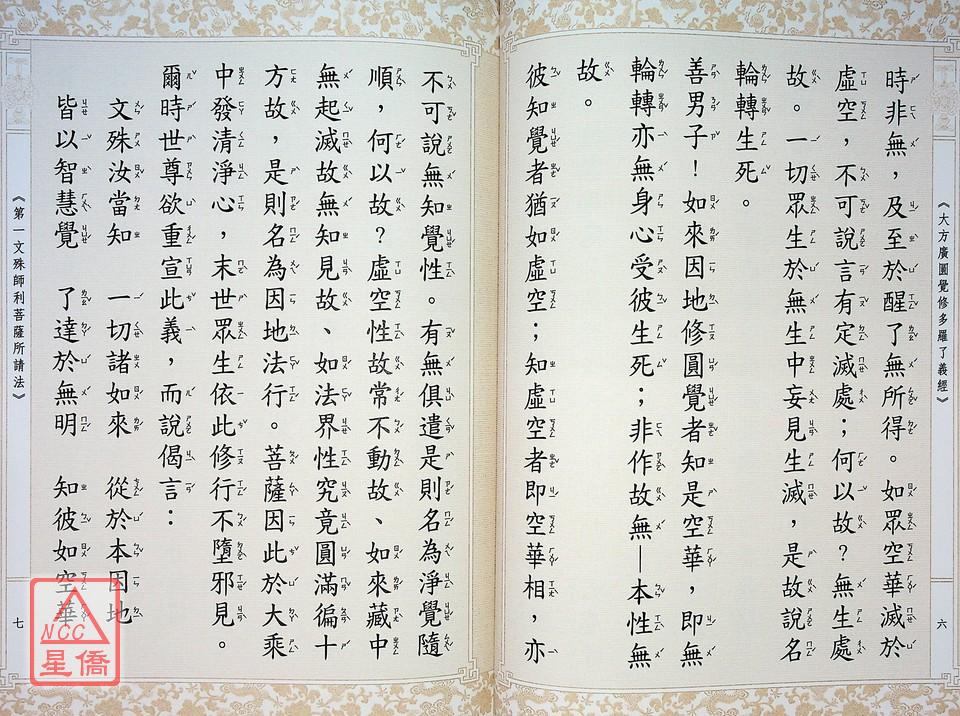 《大方廣圓覺修多羅了義經》
六
時非無，及至於醒了無所得。如眾空華滅於
虛空，不可說言有定滅處；何以故？無生處
故。一切眾生於無生中妄見生滅，是故說名
輪轉生死。
善男子！如來因地修圓覺者知是空華，即無
輪轉亦無身心受彼生死；非作故無—本性無
故。
彼知覺者猶如虛空；知虛空者即空華相，亦
不可說無知覺性。有無俱遣是則名為淨覺隨
順，何以故？虛空性故常不動故、如來藏中
無起滅故無知見故、如法界性究竟圓滿徧十
方故，是則名為因地法行。菩薩因此於大乘
中發清淨心，末世眾生依此修行不墮邪見。
爾時世尊欲重宣此義，而說偈言：
文殊汝當知　一切諸如來　從於本因地
皆以智慧覺　了達於無明　知彼如空華
《第一文殊師利菩薩所請法》
七
NCC
星僑